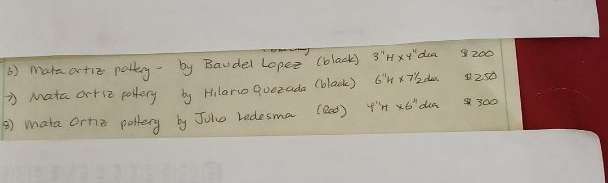 6) Mata ortiz pottery - by Baudel Lopez (black) 3"H x 4" dia $200
7) Mata ortiz pottery by Hilario Quezada (black) 6"H x 7½ dia $250
8) Mata Ortiz pottery by Julio Ledesma (Red) 4"H x 6" dia $300